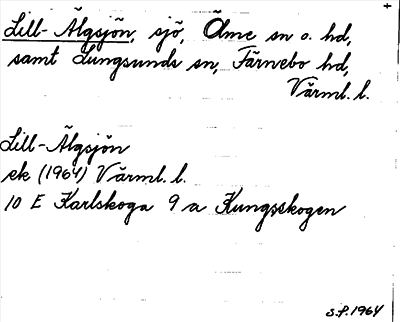 Lill-Älgsjön, sjö, Ölme sn o. hd,
samt Lungsunds sn, Färnebo hd,
Värml. l.
Lill-Älgsjön
ek (1964) Värml. l.
10 E Karlskoga 9 a Kungsskogen
S.P. 1964